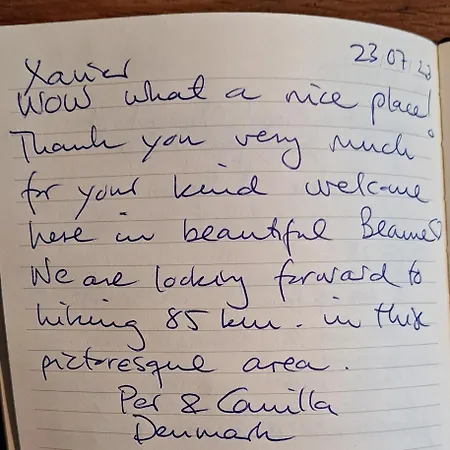 23 07 23
Xavier
Wow what a nice place!
Thank you very much
for your kind welcome
here in beautiful
We are looking forward to
hiking 85 km. in this
picturesque area.
Per & Camilla
Denmark